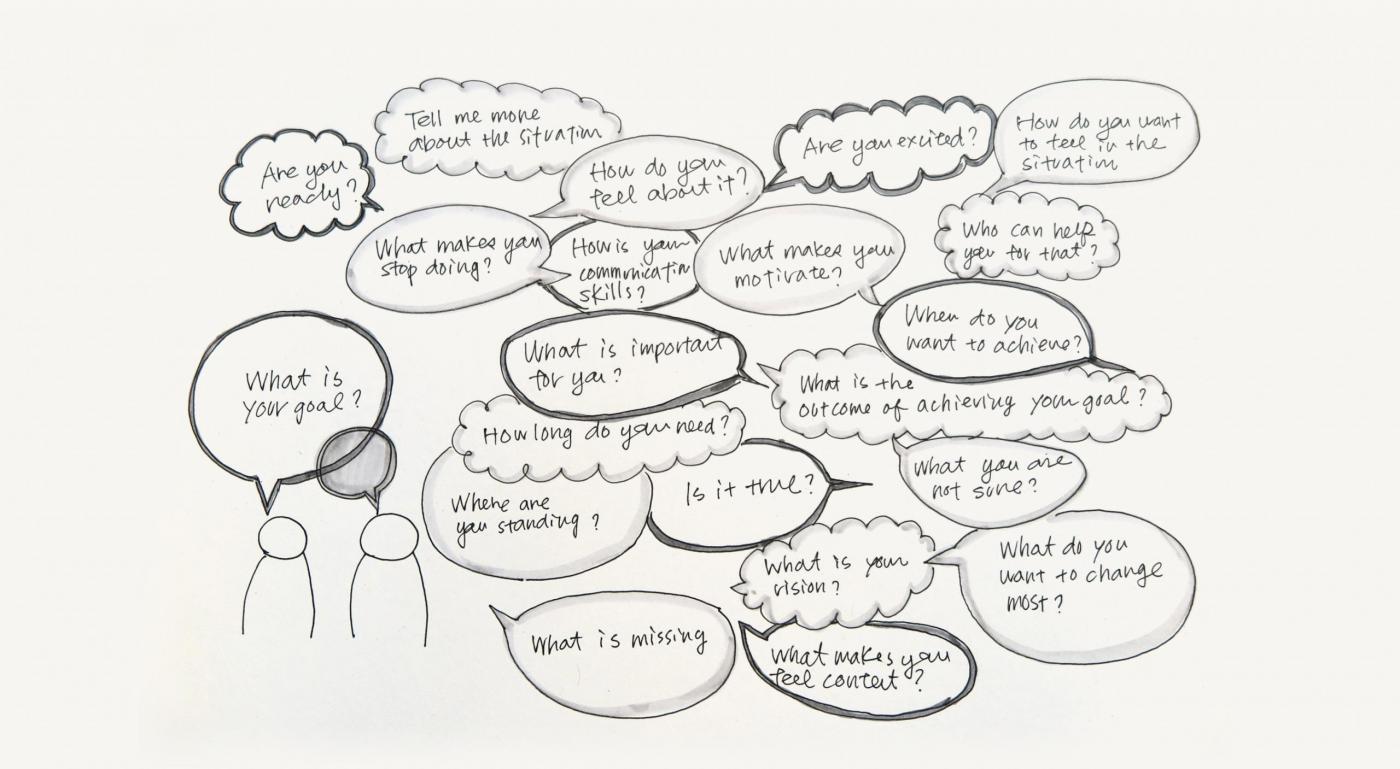 Tell me more
about the situation
Are you
ready?
How do you
feel about it?
Are you excited?
How do you want
to feel in the
situation
What makes you
stop doing?
How is your
communication
skills?
What makes you
motivate?
Who can help
you for that?
When do you
want to achieve?
What is important
for you?
What is the
outcome of achieving your goal?
What is
your goal?
How long do you need?
Where are
you standing?
Is it true?
What you are
not sure?
What is your
vision?
What do you
want to change
most?
What is missing
What makes you
feel content?